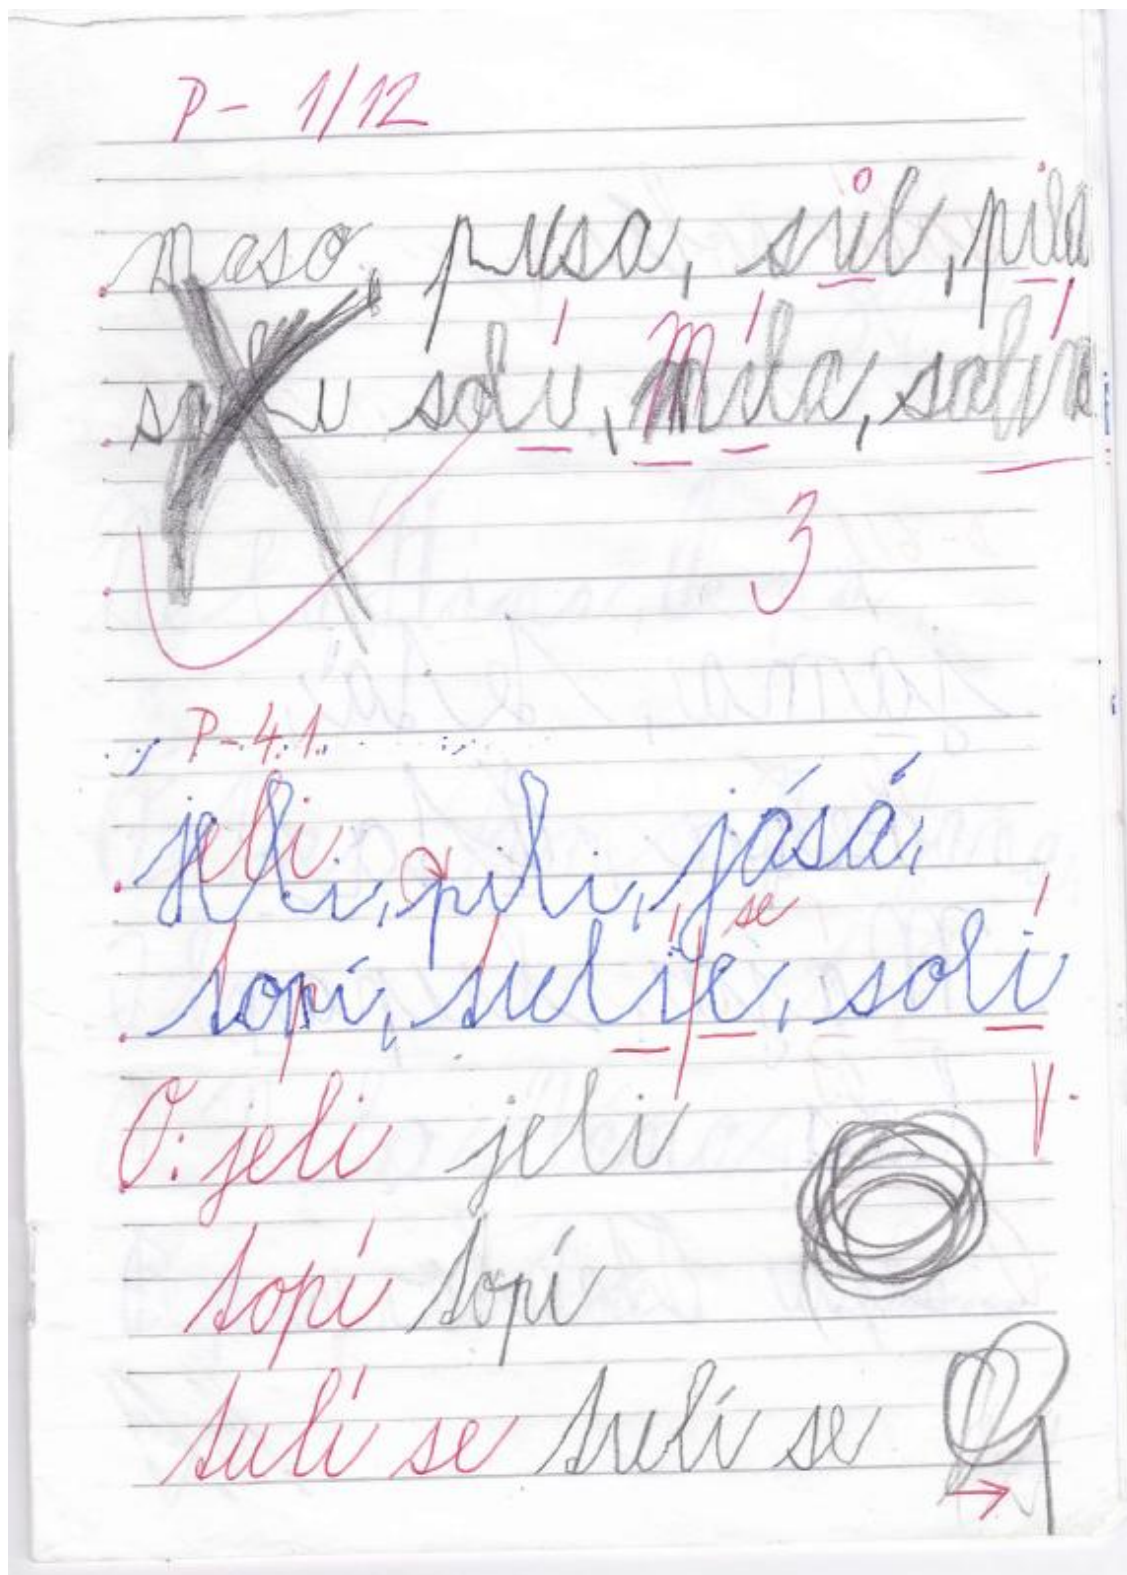 P - 1/12
maso, pusa, sůl, pila
solí, Míla, solím
3
P - 4.1.
jeli
jeli, pili, jásá,
se
topí, tulí je, solí
O: jeli jeli
topí topí
tulí se tulí se